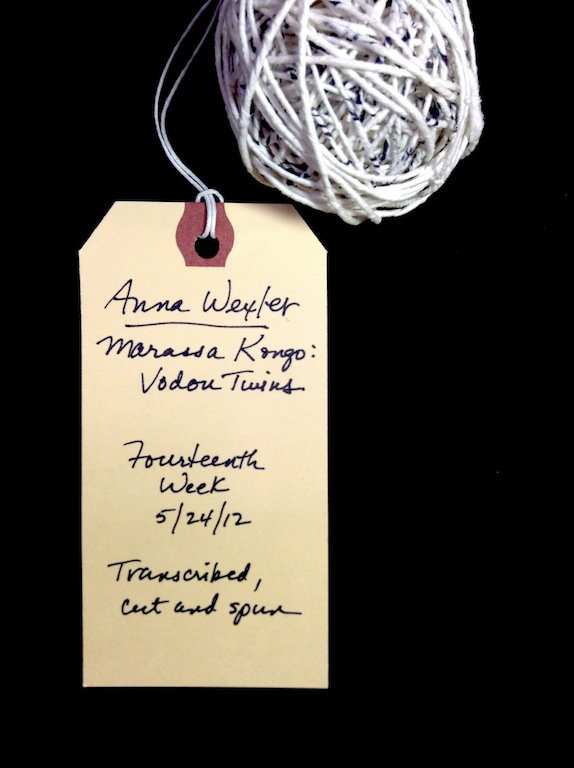 Anna Wexler
Marassa Kongo:
Vodou Twins
Fourteenth
Week
5/24/12
Transcribed,
cut and spun